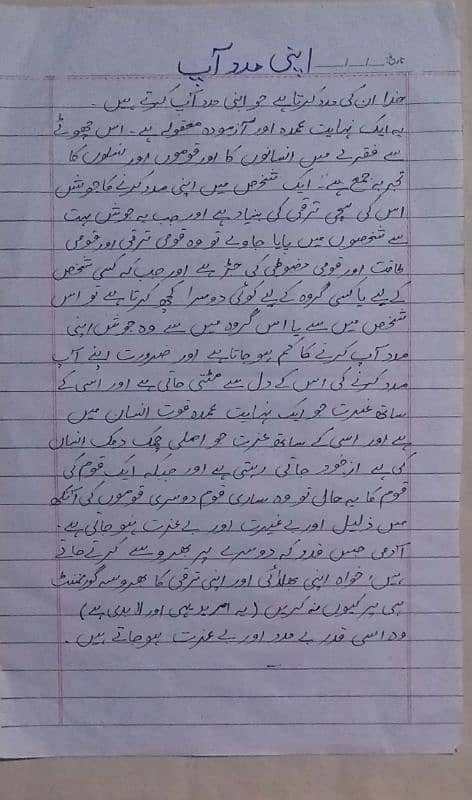 تاریخ / /
اپنی مدد آپ
خدا ان کی مدد کرتا ہے جو اپنی مدد آپ کرتے ہیں۔
یہ ایک نہایت عمدہ اور آزمودہ مقولہ ہے۔ اس چھوٹے
سے فقرے میں انسانوں کا اور قوموں اور نسلوں کا
تجربہ جمع ہے۔ ایک شخص میں اپنی مدد کرنے کا جوش
اس کی سچی ترقی کی بنیاد ہے اور جب یہ جوش بہت
سے شخصوں میں پایا جاوے تو وہ قومی ترقی اور قومی
طاقت اور قومی مضبوطی کی جڑ ہے اور جب کہ کسی شخص
کے لیے یا کسی گروہ کے لیے کوئی دوسرا کچھ کرتا ہے تو اس
شخص میں سے یا اس گروہ میں سے وہ جوش اپنی
مدد آپ کرنے کا کم ہو جاتا ہے اور ضرورت اپنے آپ
مدد کرنے کی اس کے دل سے مٹتی جاتی ہے اور اسی کے
ساتھ غیرت جو ایک نہایت عمدہ قوت انسان میں
ہے اور اسی کے ساتھ عزت جو اصلی چمک دمک انسان
کی ہے از خود جاتی رہتی ہے اور جبکہ ایک قوم کی
قوم کا یہ حال تو وہ ساری قوم دوسری قوموں کی آنکھ
میں ذلیل اور بے غیرت اور بے عزت ہو جاتی ہے۔
آدمی جس قدر کہ دوسرے پر بھروسے کرتے جاتے
ہیں، خواہ اپنی بھلائی اور اپنی ترقی کا بھروسہ گورنمنٹ
ہی پر کیوں نہ کریں (یہ امر بدیہی اور لابدی ہے)
وہ اسی قدر بے مدد اور بے عزت ہو جاتے ہیں۔